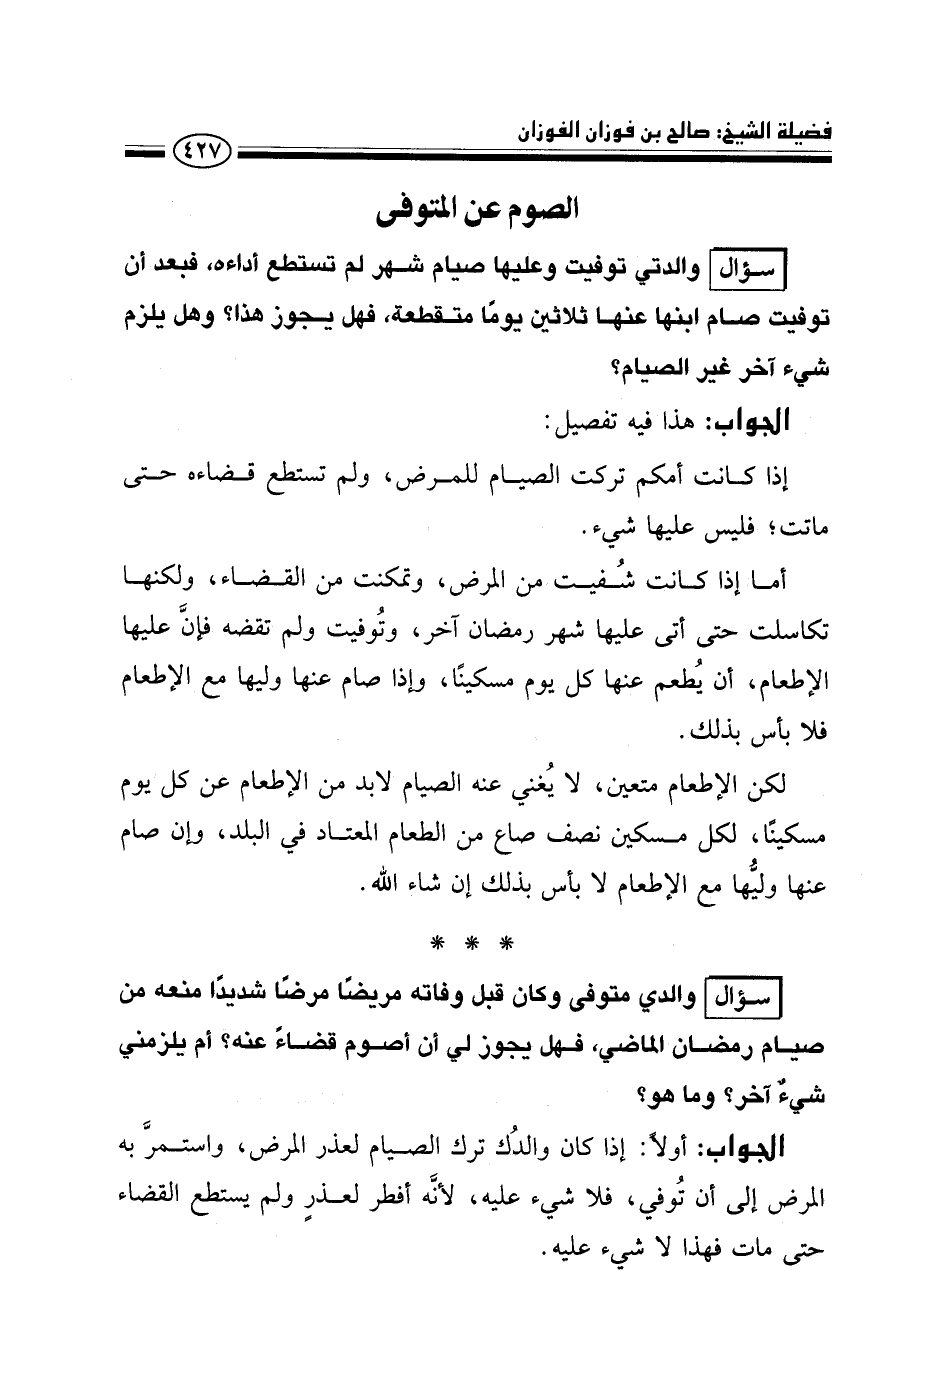 فضيلة الشيخ: صالح بن فوزان الفوزان
٤٢٧
الصوم عن المتوفى
سؤال والدتي توفيت وعليها صيام شهر لم تستطع أداءه، فبعد أن
توفيت صام ابنها عنها ثلاثين يومًا متقطعة، فهل يجوز هذا؟ وهل يلزم
شيء آخر غير الصيام؟
الجواب: هذا فيه تفصيل:
إذا كانت أمكم تركت الصيام للمرض، ولم تستطع قضاءه حتى
ماتت؛ فليس عليها شيء.
أما إذا كانت شُفيت من المرض، وتمكنت من القضاء، ولكنها
تكاسلت حتى أتى عليها شهر رمضان آخر، وتُوفيت ولم تقضه فإنَّ عليها
الإطعام، أن يُطعم عنها كل يوم مسكينًا، وإذا صام عنها وليها مع الإطعام
فلا بأس بذلك.
لكن الإطعام متعين، لا يُغني عنه الصيام لابد من الإطعام عن كل يوم
مسكينًا، لكل مسكين نصف صاع من الطعام المعتاد في البلد، وإن صام
عنها وليُّها مع الإطعام لا بأس بذلك إن شاء الله.
* * *
سؤال والدي متوفى وكان قبل وفاته مريضًا مرضًا شديدًا منعه من
صيام رمضان الماضي، فهل يجوز لي أن أصوم قضاءً عنه؟ أم يلزمني
شيءٌ آخر؟ وما هو؟
الجواب: أولاً: إذا كان والدُك ترك الصيام لعذر المرض، واستمرَّ به
المرض إلى أن تُوفي، فلا شيء عليه، لأنَّه أفطر لعذرٍ ولم يستطع القضاء
حتى مات فهذا لا شيء عليه.